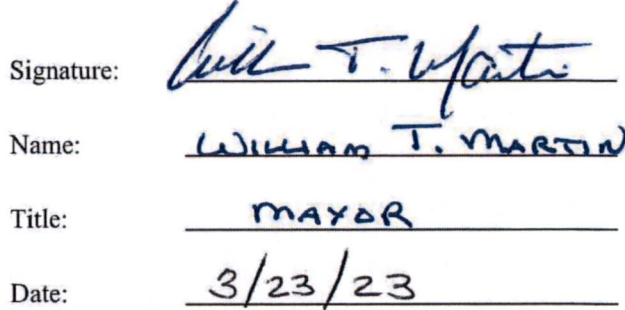 Signature: Will T. Martin
Name: WILLIAM T. MARTIN
Title: MAYOR
Date: 3/23/23